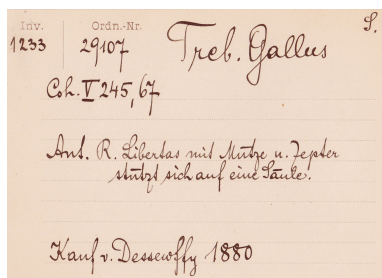 Inv. Ordn.-Nr. S.
1233 29107 Treb. Gallus
Coh. V 245, 67
Ant. R. Libertas mit Mütze u. Zepter
stützt sich auf eine Säule.
Kauf v. Dessewffy 1880